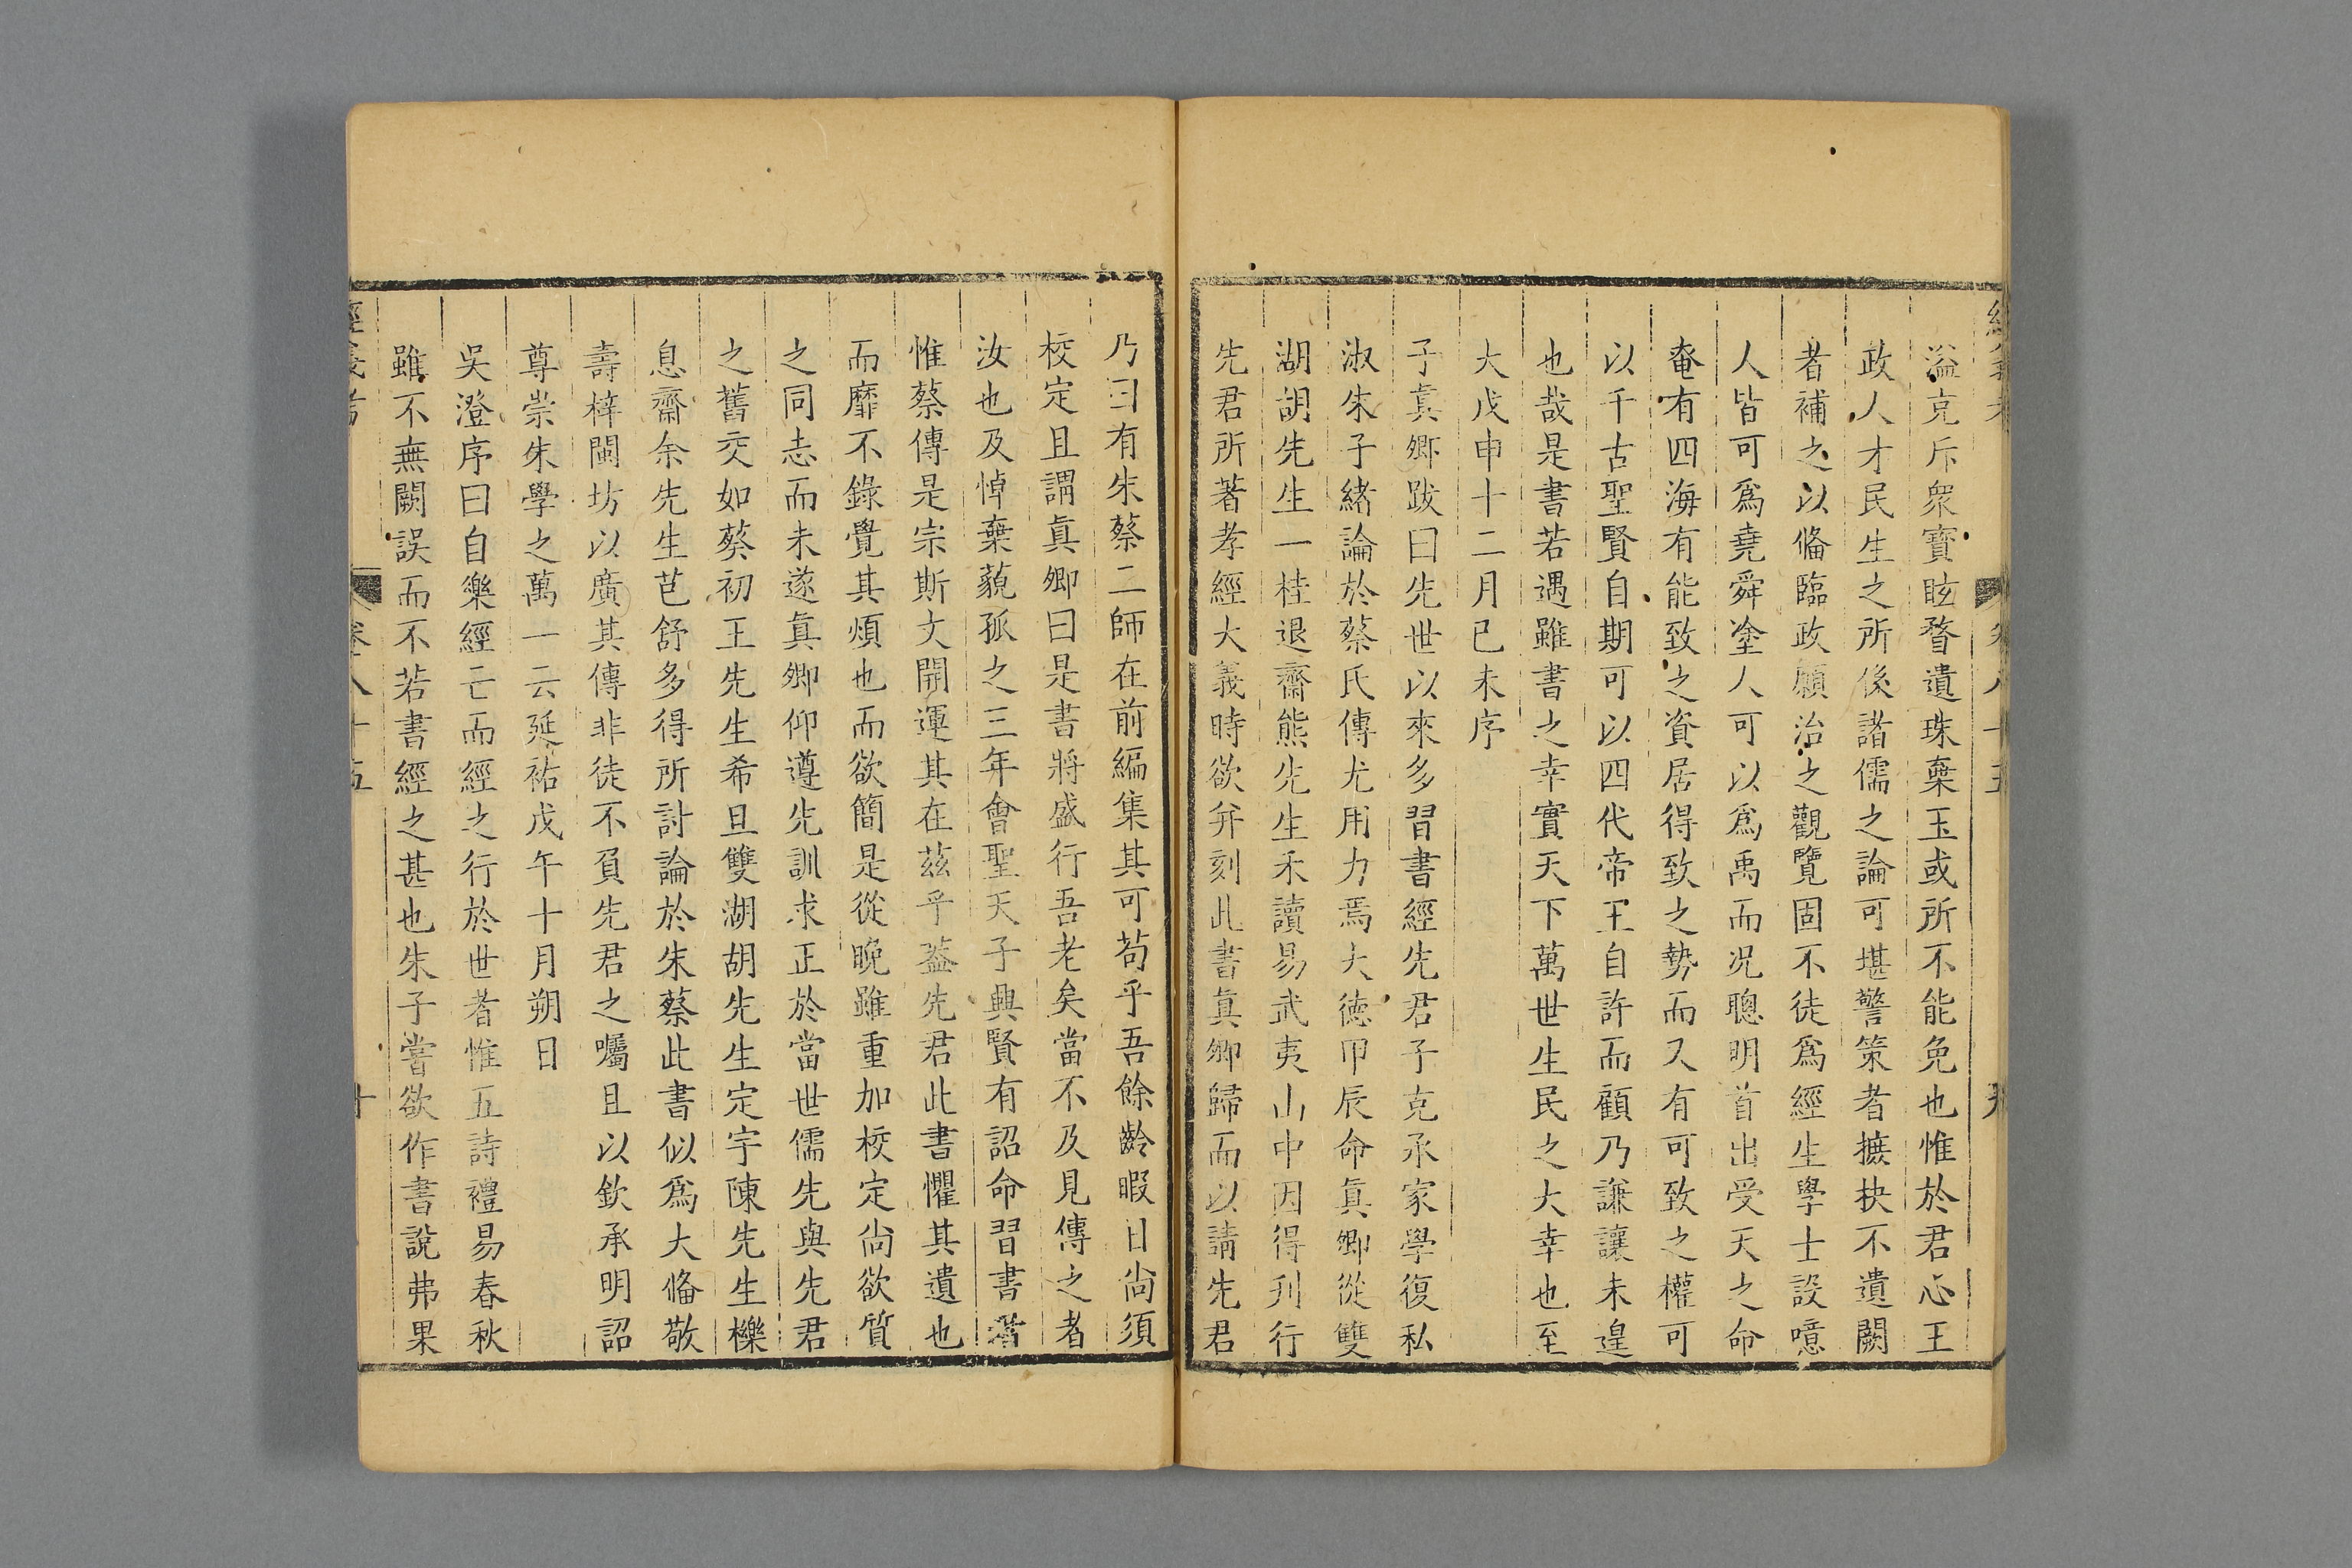 溢克斥衆寶眩瞀遺珠棄玉或所不能免也惟於君心王
政人才民生之所係諸儒之論可堪警策者摭抉不遺闕
者補之以俻臨政願治之觀覽固不徒爲經生學士設噫
人皆可爲堯舜塗人可以爲禹而况聰明首出受天之命
奄有四海有能致之資居得致之勢而又有可致之權可
以千古聖賢自期可以四代帝王自許而顧乃謙讓未遑
也哉是書若遇雖書之幸實天下萬世生民之大幸也至
大戊申十二月己未序
子真卿跋曰先世以來多習書經先君子克承家學復私
淑朱子緒論於蔡氏傳尤用力焉大德甲辰命真卿從雙
湖胡先生一桂退齋熊先生禾讀易武夷山中因得刋行
先君所著孝經大義時欲并刻此書真卿歸而以請先君
乃曰有朱蔡二師在前編集其可苟乎吾餘齡暇日尚須
校定且謂真卿曰是書將盛行吾老矣當不及見傳之者
汝也及悼棄藐孤之三年會聖天子興賢有詔命習書者
惟蔡傳是宗斯文開運其在茲乎葢先君此書懼其遺也
而靡不錄覺其煩也而欲簡是從晚雖重加校定尚欲質
之同志而未遂真卿仰遵先訓求正於當世儒先與先君
之舊交如葵初王先生希旦雙湖胡先生定宇陳先生櫟
息齋余先生芑舒多得所討論於朱蔡此書似爲大俻敬
壽梓閩坊以廣其傳非徒不負先君之囑且以欽承明詔
尊崇朱學之萬一云延祐戊午十月朔日
吳澄序曰自樂經亡而經之行於世者惟五詩禮易春秋
雖不無闕誤而不若書經之甚也朱子嘗欲作書說弗果
經義考 卷八十五 十